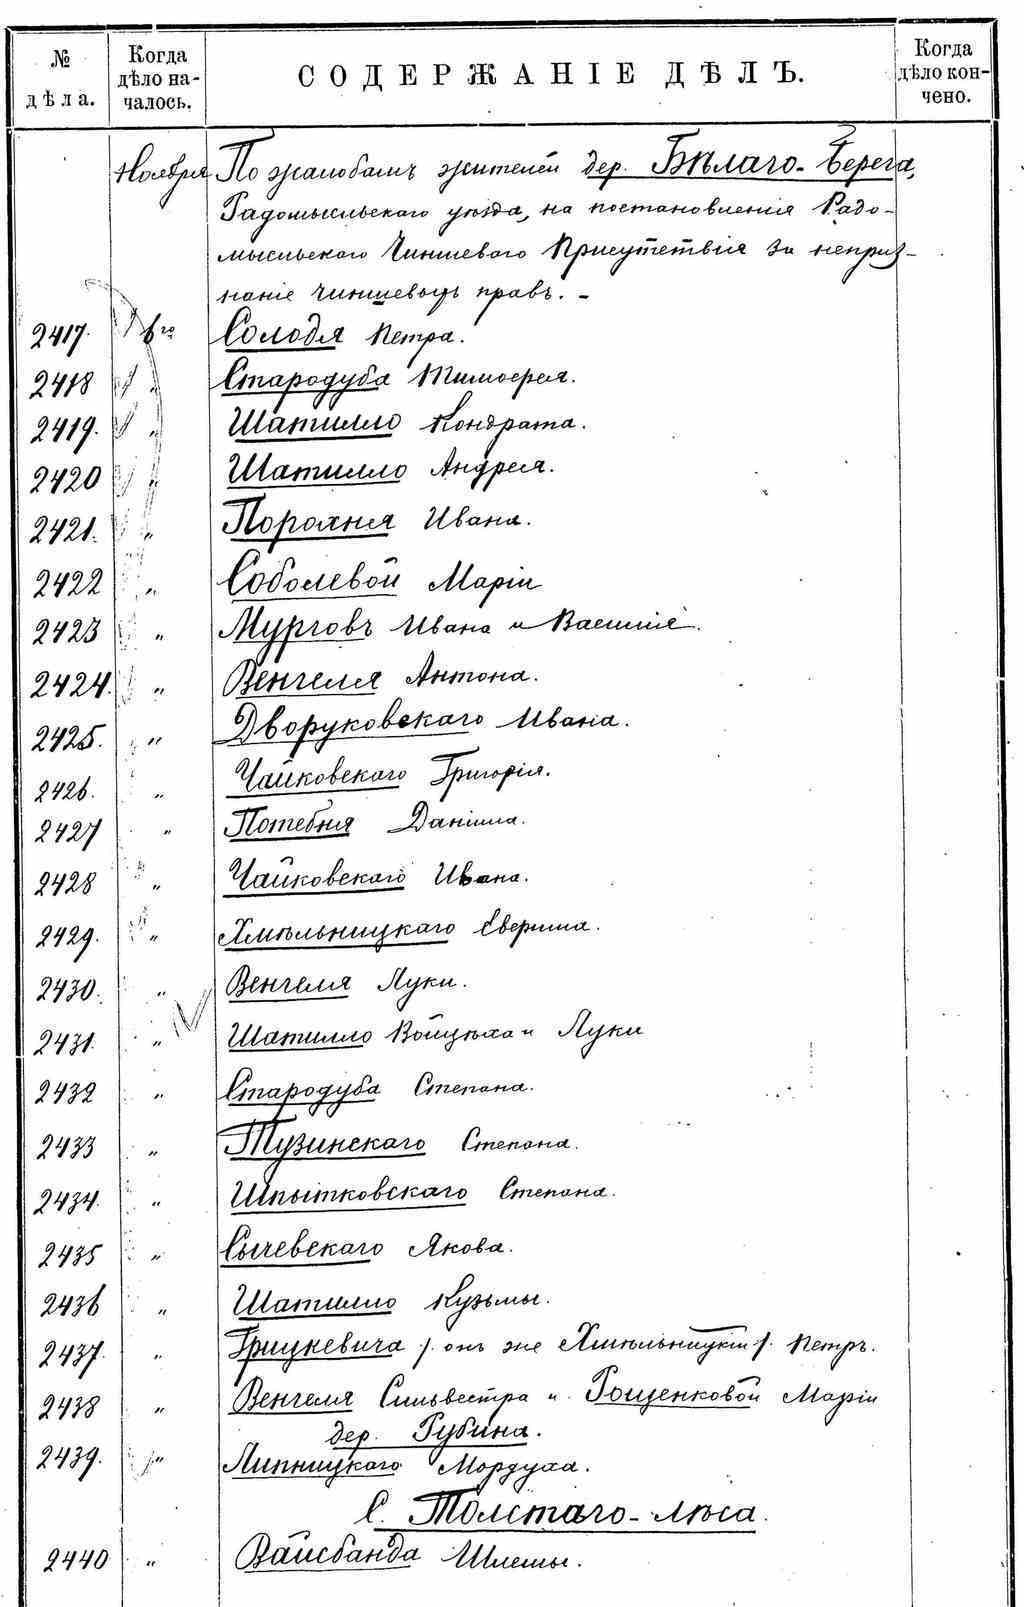 № дѣла.
Когда дѣло началось.
СОДЕРЖАНІЕ ДѢЛЪ.
Когда дѣло кончено.
Ноября По жалобамъ жителей дер. Бѣлаго-Берега,
Радомысльскаго уѣзда, на постановленія Радо-
мысльскаго Чиншеваго Присутствія за неприз-
наніе чиншевыхъ правъ. -
2417. 6го Солодя Петра.
2418 " Стародуба Тимофея.
2419. " Шатилло Кондрата.
2420 " Шатилло Андрея.
2421. " Порохня Ивана.
2422 " Соболевой Маріи
2423 " Мурговъ Ивана и Василія.
2424. " Венгеля Антона.
2425. " Дворуковскаго Ивана.
2426. " Чайковскаго Григорія.
2427 " Потебня Даніила.
2428 " Чайковскаго Ивана.
2429. " Хмѣльницкаго Севериша.
2430. " Венгеля Луки.
2431. " Шатилло Войцѣха и Луки
2432 " Стародуба Степана.
2433 " Тузинскаго Степана.
2434. " Шпытковскаго Степана.
2435 " Сычевскаго Якова.
2436 " Шатилло Кузьмы.
2437. " Грицкевича /. онъ же Хмѣльницкій /. Петръ.
2438 " Венгеля Сильвестра и Рощенковой Маріи
дер. Рубина.
2439. " Липницкаго Мордуха.
С. Толстаго-лѣса.
2440 " Вайсбанда Шлемы.